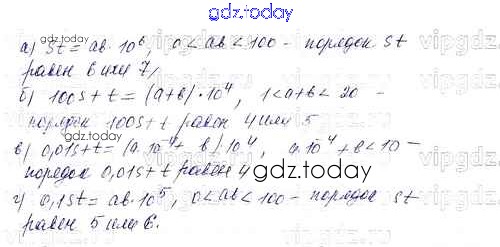 gdz.today
а) st = ab·10⁶, 0 < ab < 100 – порядок st
равен 6 или 7
б) 100s + t = (a+b)·10⁴, 1 < a+b < 20 –
порядок 100s + t равен 4 или 5
в) 0,01s + t = (a·10⁻⁴ + b)·10⁴, a·10⁻⁴ + b < 10 –
порядок 0,01s + t равен 4
gdz.today
г) 0,1st = ab·10⁵, 0 < ab < 100 – порядок st
равен 5 или 6.
gdz.today